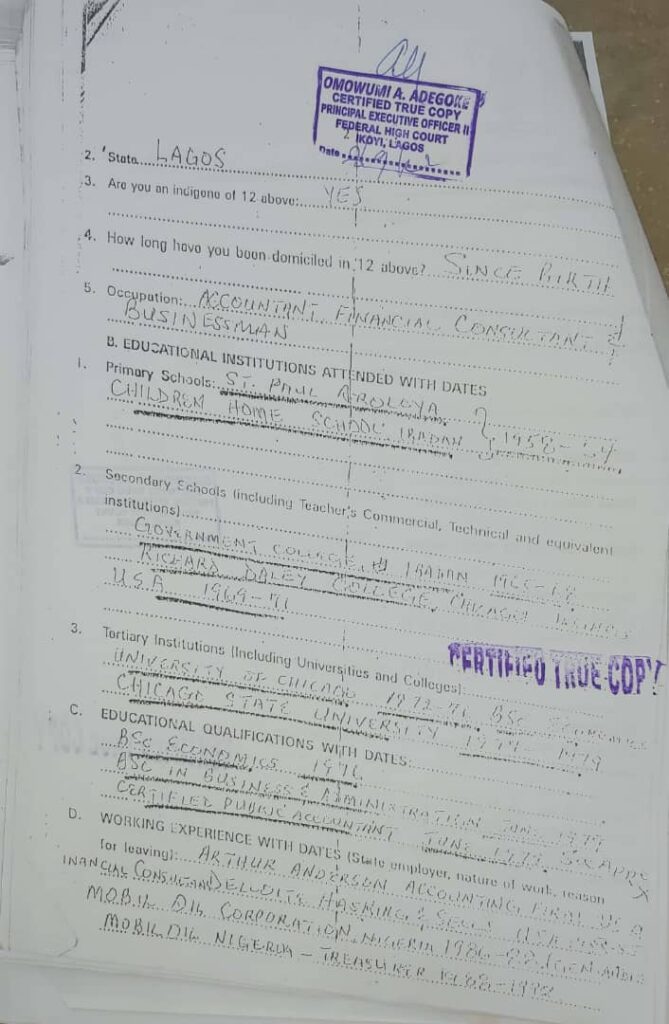 OMOWUMI A. ADEGOKE
CERTIFIED TRUE COPY
PRINCIPAL EXECUTIVE OFFICER II
FEDERAL HIGH COURT
IKOYI, LAGOS
Date
2. State LAGOS
3. Are you an indigene of 12 above: YES
4. How long have you been domiciled in 12 above? SINCE BIRTH
5. Occupation: ACCOUNTANT, FINANCIAL CONSULTANT &
BUSINESSMAN
B. EDUCATIONAL INSTITUTIONS ATTENDED WITH DATES
1. Primary Schools: ST. PAUL AROLOYA
CHILDREN HOME SCHOOL IBADAN 1958-64
2. Secondary Schools (including Teacher's Commercial, Technical and equivalent
institutions)
GOVERNMENT COLLEGE, IBADAN
RICHARD DALEY COLLEGE, CHICAGO ILLINOIS
U.S.A 1969-71
3. Tertiary Institutions (Including Universities and Colleges):
CERTIFIED TRUE COPY
UNIVERSITY OF CHICAGO 1972-76 BSC ECONOMICS
CHICAGO STATE UNIVERSITY 1979
C. EDUCATIONAL QUALIFICATIONS WITH DATES:
BSC ECONOMICS 1976
BSC IN BUSINESS & ADMINISTRATION JUNE 1979
CERTIFIED PUBLIC ACCOUNTANT JUNE
D. WORKING EXPERIENCE WITH DATES (State employer, nature of work, reason
for leaving): ARTHUR ANDERSON ACCOUNTING FIRM
INANCIAL CONSULTANT DELLOITE HASKING & SELLS USA
MOBIL OIL CORPORATION, NIGERIA 1986-88
MOBIL OIL NIGERIA - TREASURER 1988-1992